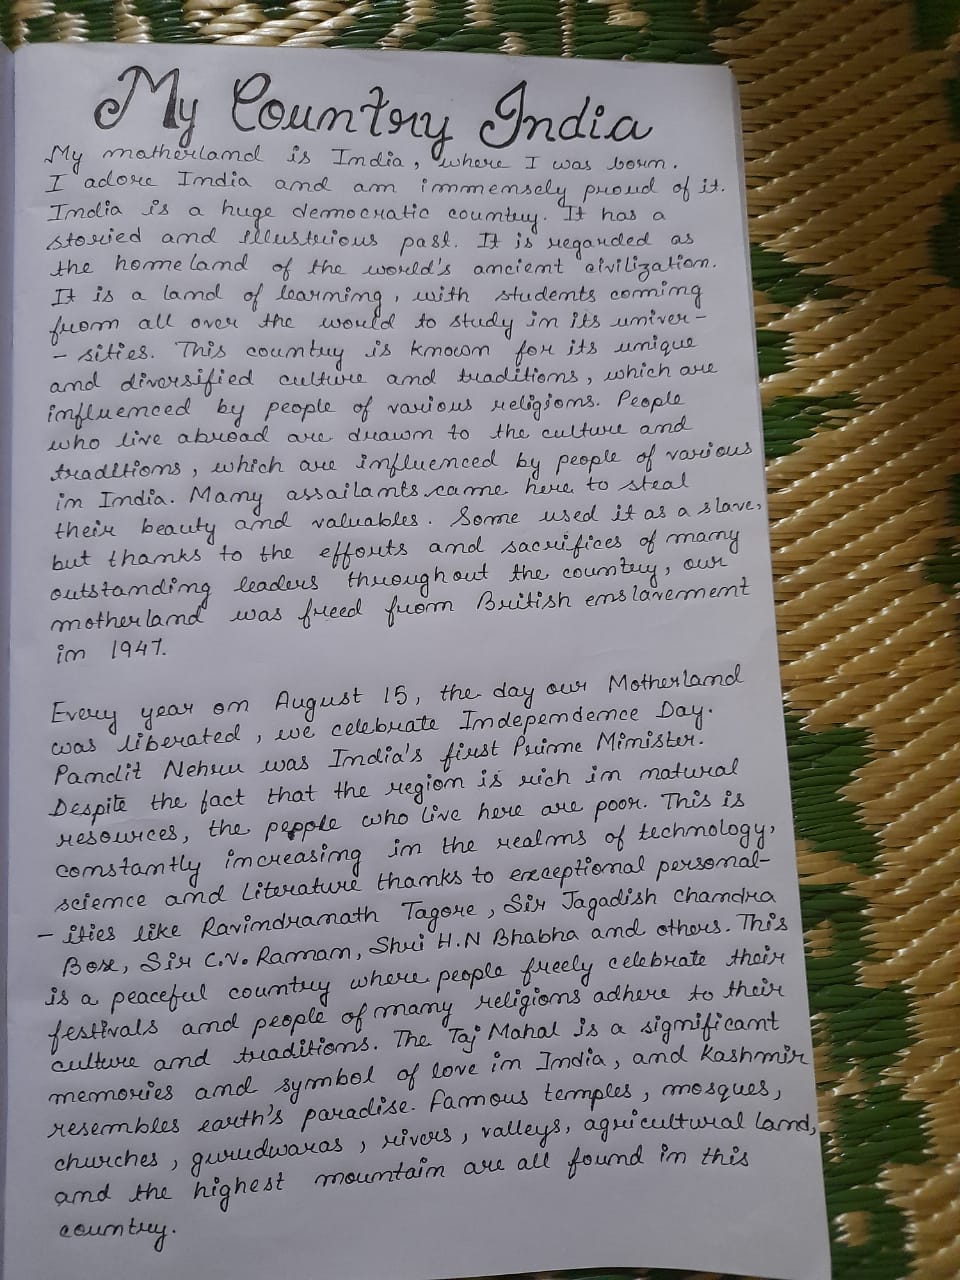 My Country India
My motherland is India, where I was born.
I adore India and am immensely proud of it.
India is a huge democratic country. It has a
storied and illustrious past. It is regarded as
the homeland of the world's ancient civilization.
It is a land of learning, with students coming
from all over the world to study in its univer-
- sities. This country is known for its unique
and diversified culture and traditions, which are
influenced by people of various religions. People
who live abroad are drawn to the culture and
traditions, which are influenced by people of various
in India. Many assailants came here to steal
their beauty and valuables. Some used it as a slave,
but thanks to the efforts and sacrifices of many
outstanding leaders throughout the country, our
motherland was freed from British enslavement
in 1947.
Every year on August 15, the day our Motherland
was liberated, we celebrate Independence Day.
Pandit Nehru was India's first Prime Minister.
Despite the fact that the region is rich in natural
resources, the people who live here are poor. This is
constantly increasing in the realms of technology,
science and literature thanks to exceptional personal-
- ities like Ravindranath Tagore, Sir Jagadish Chandra
Bose, Sir C.V. Raman, Shri H.N Bhabha and others. This
is a peaceful country where people freely celebrate their
festivals and people of many religions adhere to their
culture and traditions. The Taj Mahal is a significant
memories and symbol of love in India, and Kashmir
resembles earth's paradise. Famous temples, mosques,
churches, gurudwaras, rivers, valleys, agricultural land,
and the highest mountain are all found in this
country.